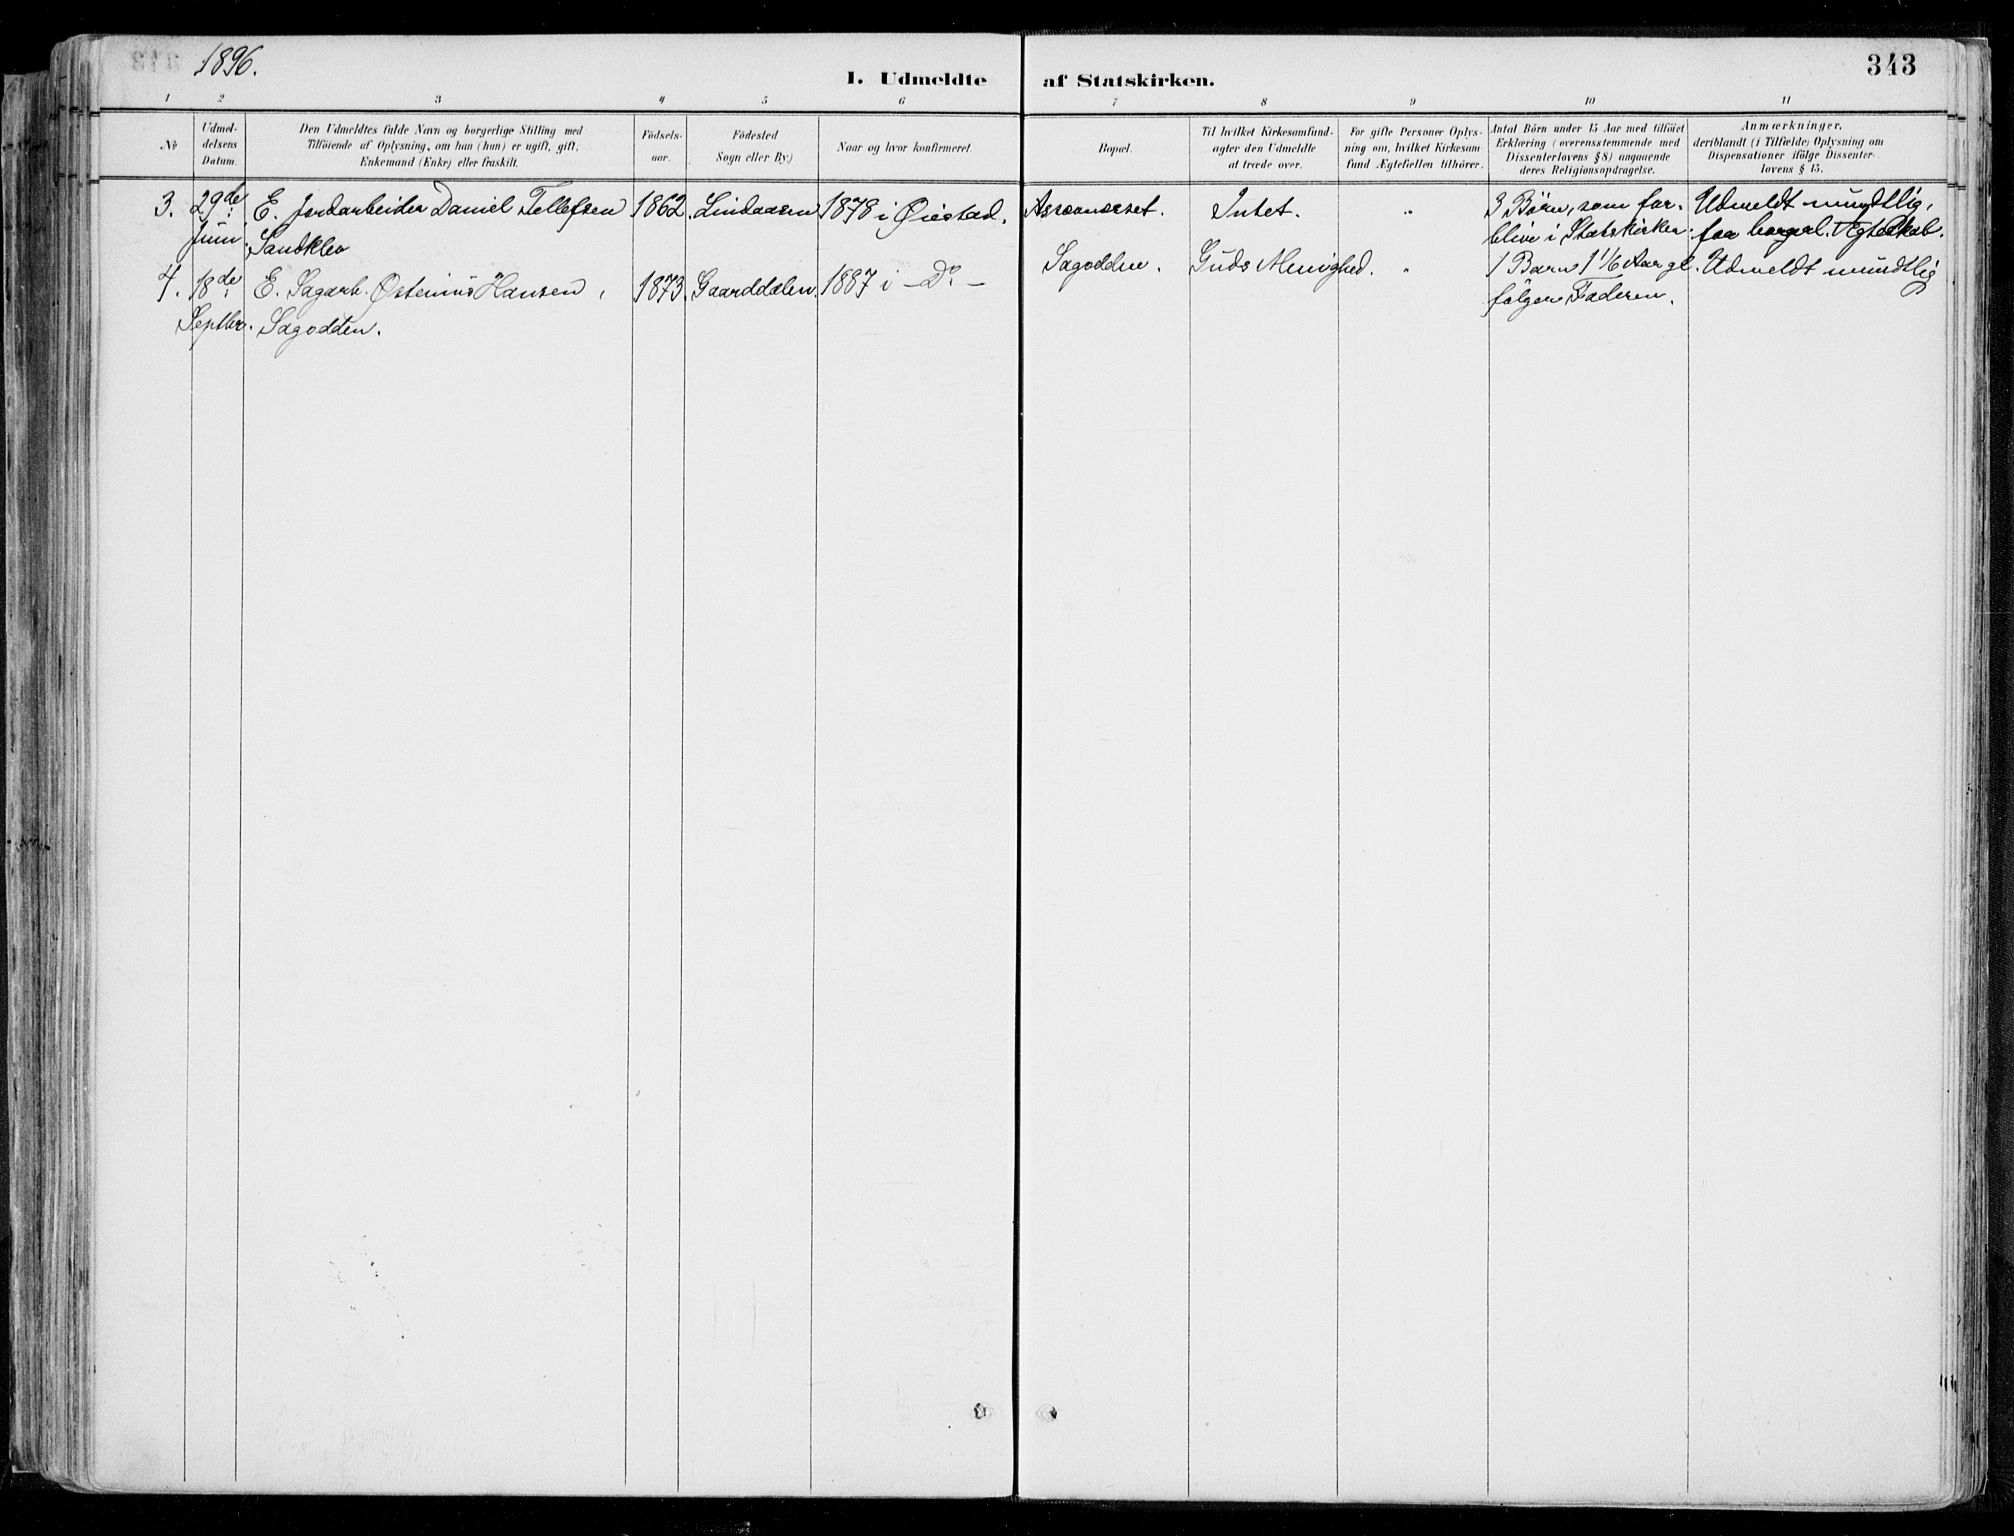 1896.
343
I. Udmeldte af Statskirken.
1 2 3 4 5 6 7 8 9 10 11
№
Udmel-
delsens
Datum.
Den Udmeldtes fulde Navn og borgerlige Stilling med
Tilföiende af Oplysning, om han (hun) er ugift, gift,
Enkemand (Enke) eller fraskilt.
Födsels-
aar.
Födested
Sogn eller By)
Naar og hvor konfirmeret.
Bopæl.
Til hvilket Kirkesamfund-
agter den Udmeldte
at træde over.
For gifte Personer Oplys-
ning om, hvilket Kirkesam-
fund Ægtefellen tilhörer.
Antal Börn under 15 Aar med tilföiet
Erklæring (overensstemmende med
Dissenterlovens § 8) angaaende
deres Religionsopdragelse.
Anmærkninger,
deriblandt (i Tilfælde) Oplysning om
Dispensationer ifölge Dissenter-
lovens § 15.
3. 29de E. Jordarbeider Daniel Tellefsen 1862. Lindaasen 1878 i Øiestad. Intet. " 3 Börn, som for- Udmeldt mundtlig,
Juni. Sandklev blive i Statskirken. faa borgerl. Ægteskab.
4. 18de E. Sagarb. Østenius Hansen, 1873. Gaarddalen 1887 i - Do - Sagodden. Guds Menighed. " 1 Barn 1 1/6 Aar gl. Udmeldt mundtlig
Septbr. Sagodden. følger Faderen.